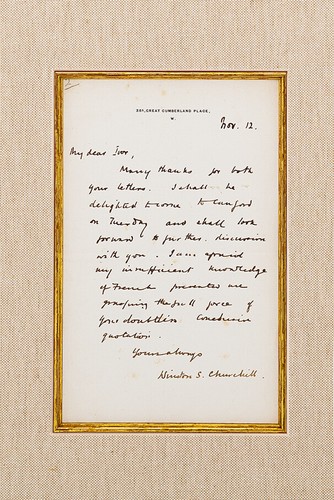 35A, GREAT CUMBERLAND PLACE,
W.
Nov. 12.
My dear Ivor,
Many thanks for both
your letters. I shall be
delighted to come to Canford
on Tuesday and shall look
forward to further discussion
with you. I am afraid
my insufficient knowledge
of French prevented me
grasping the full force of
your doubtless
quotation.
Yours always
Winston S. Churchill.